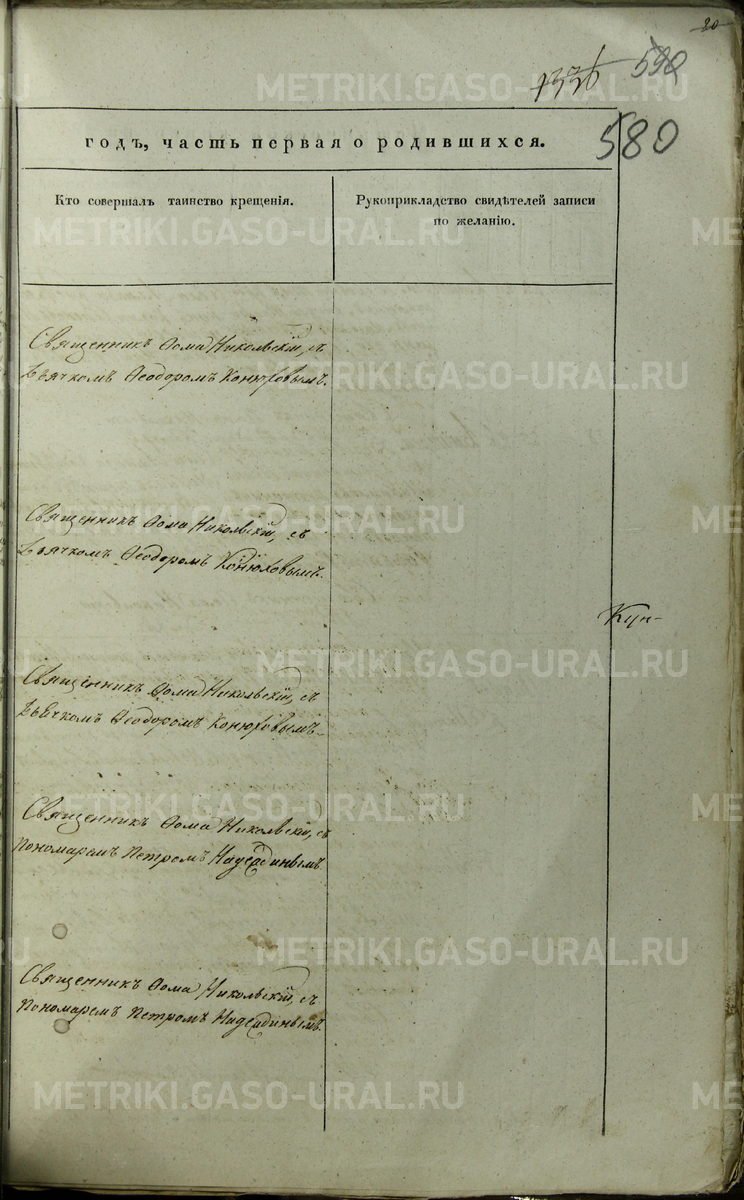 20
1336
590
580
годъ, часть первая о родившихся.
Кто совершалъ таинство крещенія.
Рукоприкладство свидѣтелей записи
по желанію.
Священникъ Ѳома Никольскій, съ
Дьячкомъ Ѳеодоромъ Конюховымъ.
Священникъ Ѳома Никольскій, съ
Дьячкомъ Ѳеодоромъ Конюховымъ.
Кун-
Священникъ Ѳома Никольскій, съ
Дьячкомъ Ѳеодоромъ Конюховымъ.
Священникъ Ѳома Никольскій, съ
Пономаремъ Петромъ
Священникъ Ѳома Никольскій, съ
Пономаремъ Петромъ
METRIKI.GASO-URAL.RU